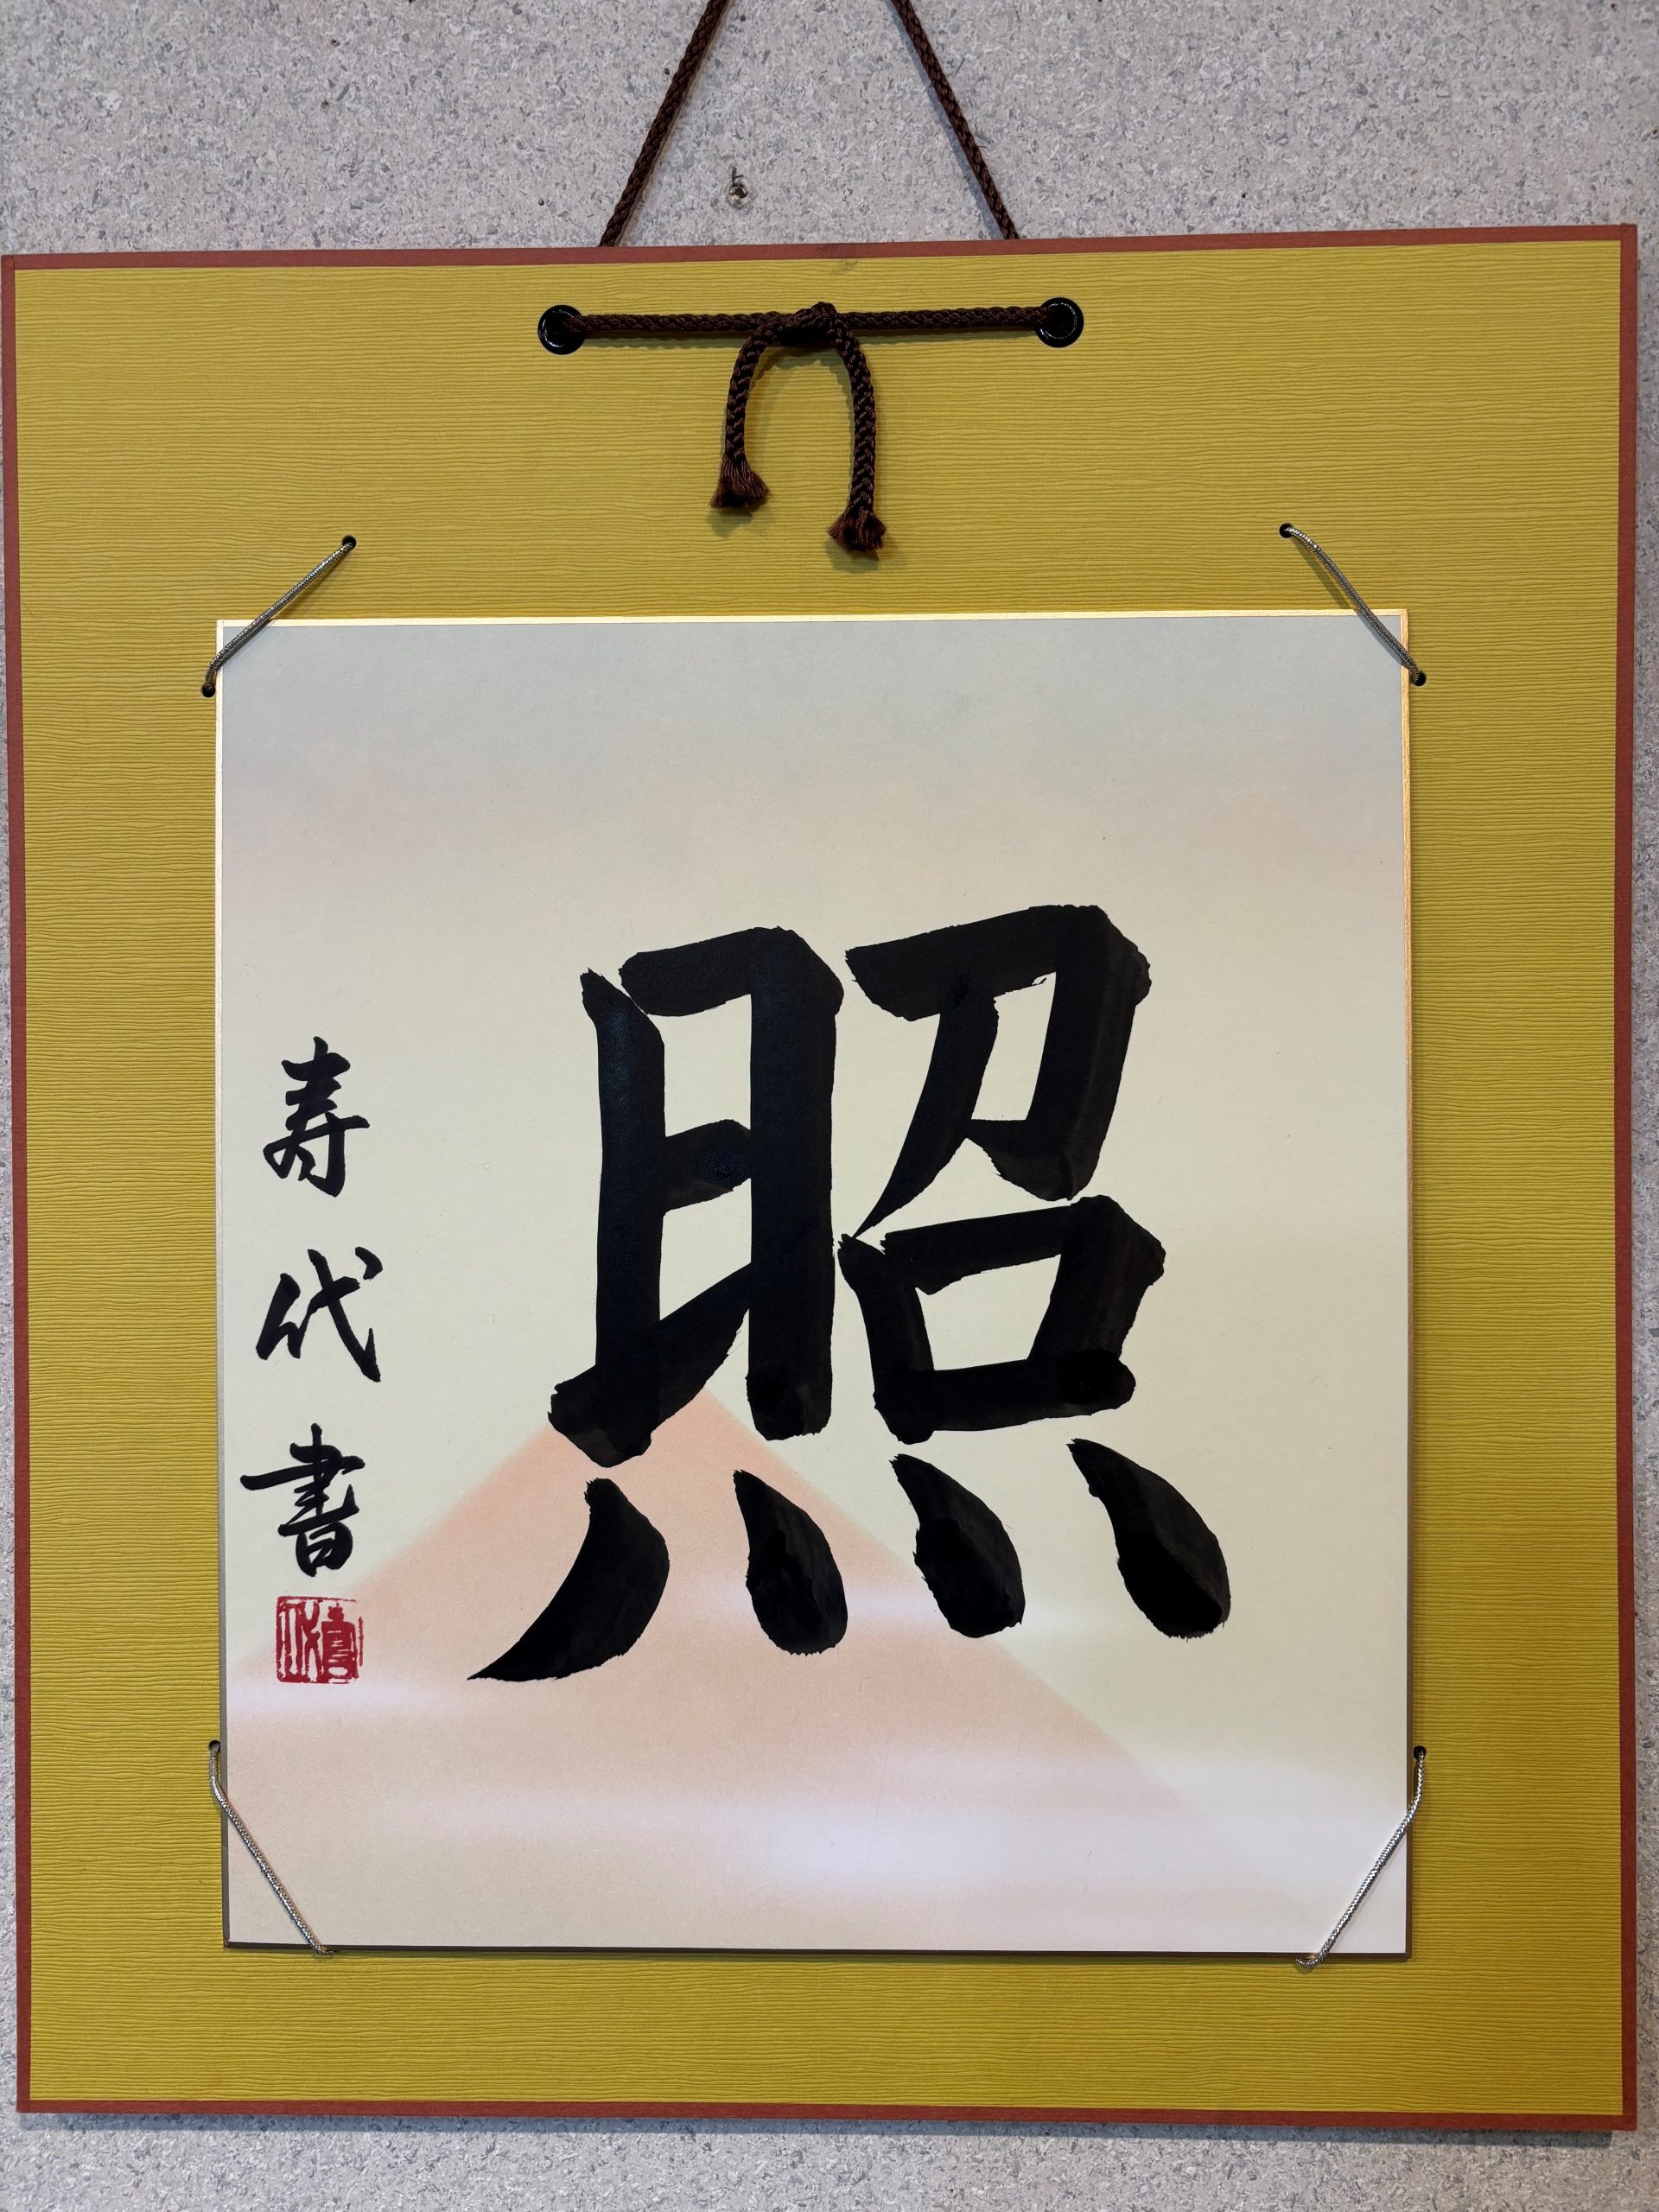 照
寿代書